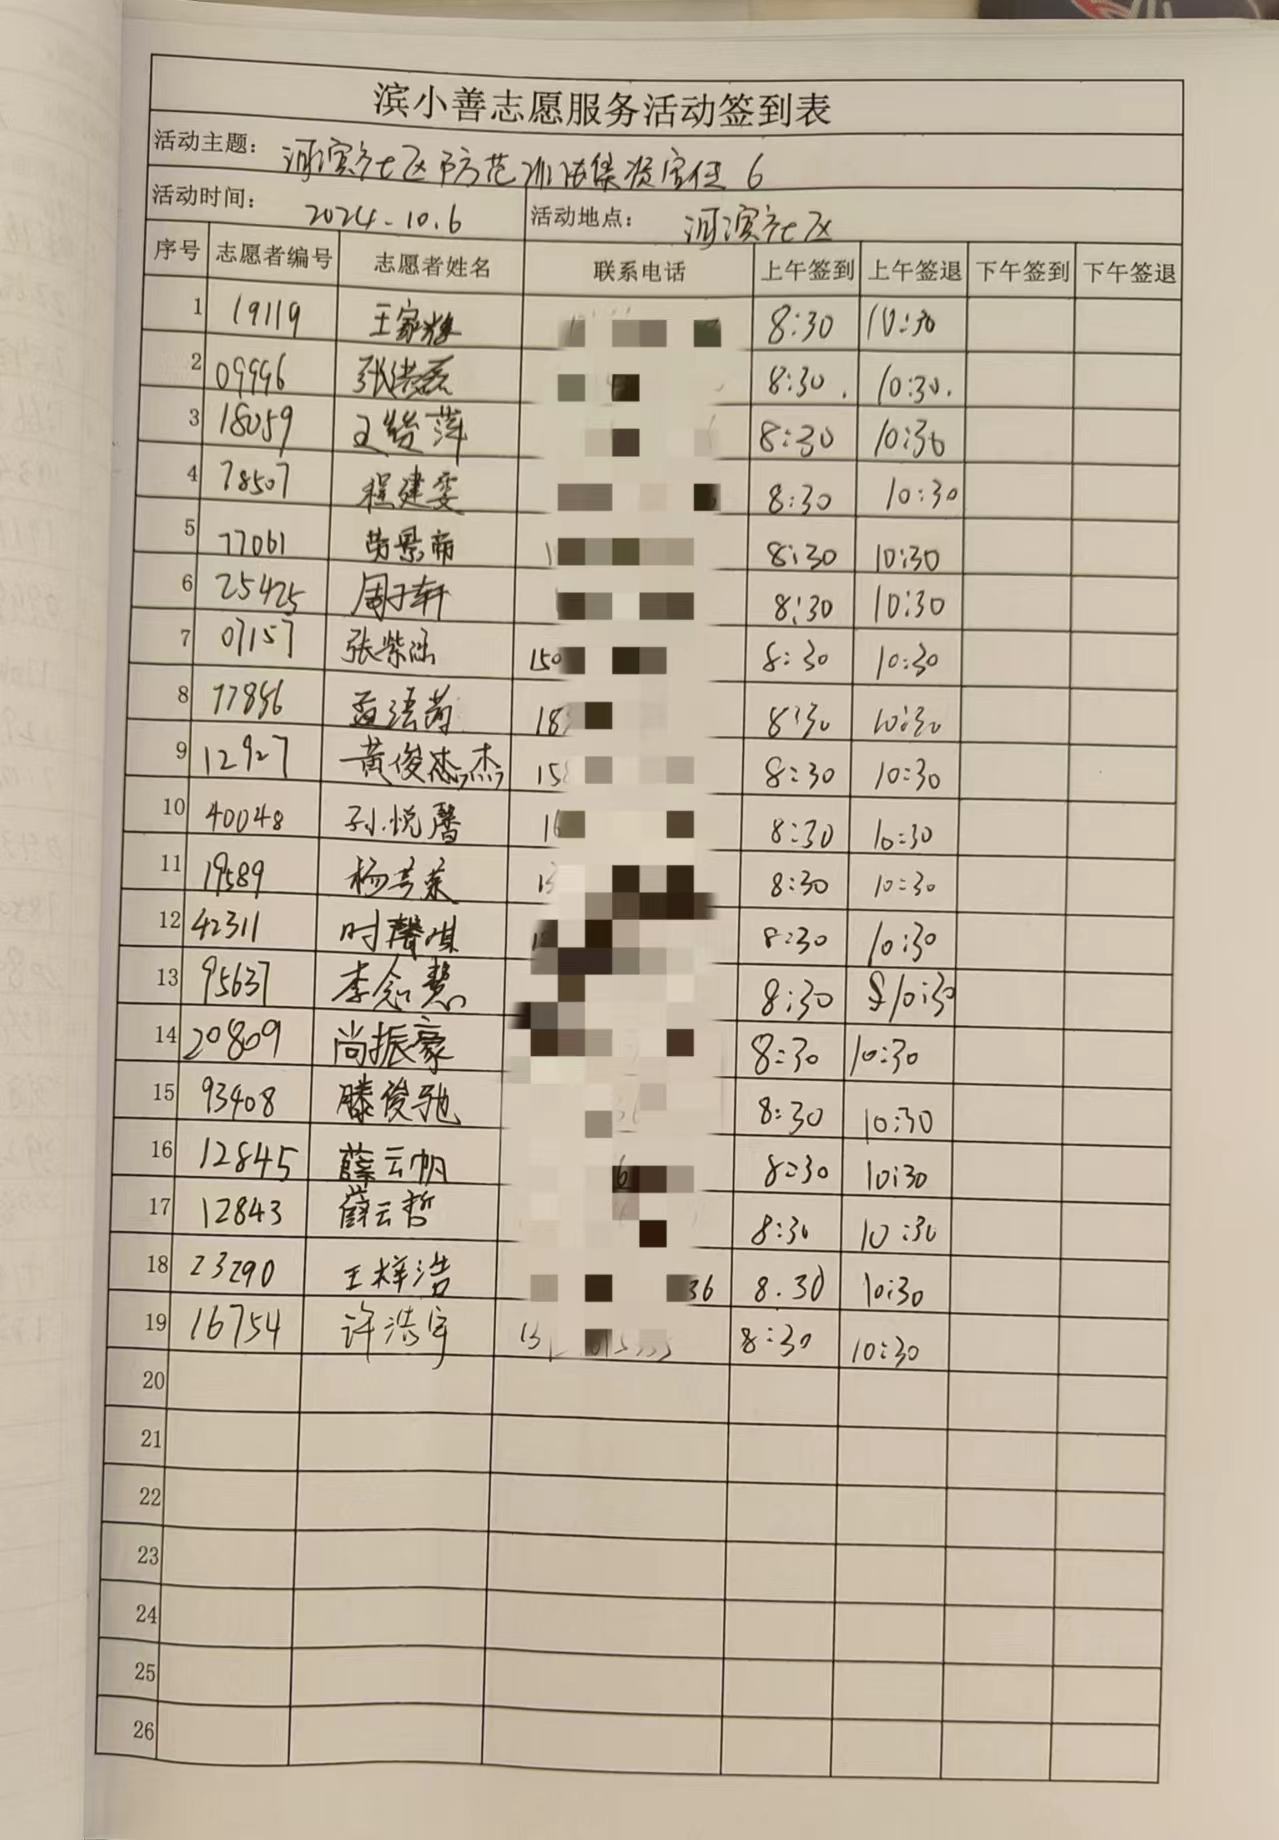 滨小善志愿服务活动签到表
活动主题： 河滨社区防范非法集资宣传 6
活动时间： 2024.10.6 活动地点： 河滨社区
序号 志愿者编号 志愿者姓名 联系电话 上午签到 上午签退 下午签到 下午签退
1 19119 王家 8:30 10:30
2 09996 张浩磊 8:30 10:30
3 18059 王 萍 8:30 10:30
4 78507 程建雯 8:30 10:30
5 77061 8:30 10:30
6 25425 周子轩 8:30 10:30
7 07157 张紫涵 150 8:30 10:30
8 77856 孟语 18 8:30 10:30
9 12927 黄俊杰 15 8:30 10:30
10 40048 孙悦馨 1 8:30 10:30
11 19589 杨 莱 13 8:30 10:30
12 42311 时馨淇 8:30 10:30
13 95637 李念慧 8:30 10:30
14 20809 尚振豪 8:30 10:30
15 93408 滕俊驰 8:30 10:30
16 12845 薛云帆 6 8:30 10:30
17 12843 薛云哲 8:30 10:30
18 23290 王梓浩 36 8.30 10:30
19 16754 许浩宇 13 8:30 10:30
20
21
22
23
24
25
26